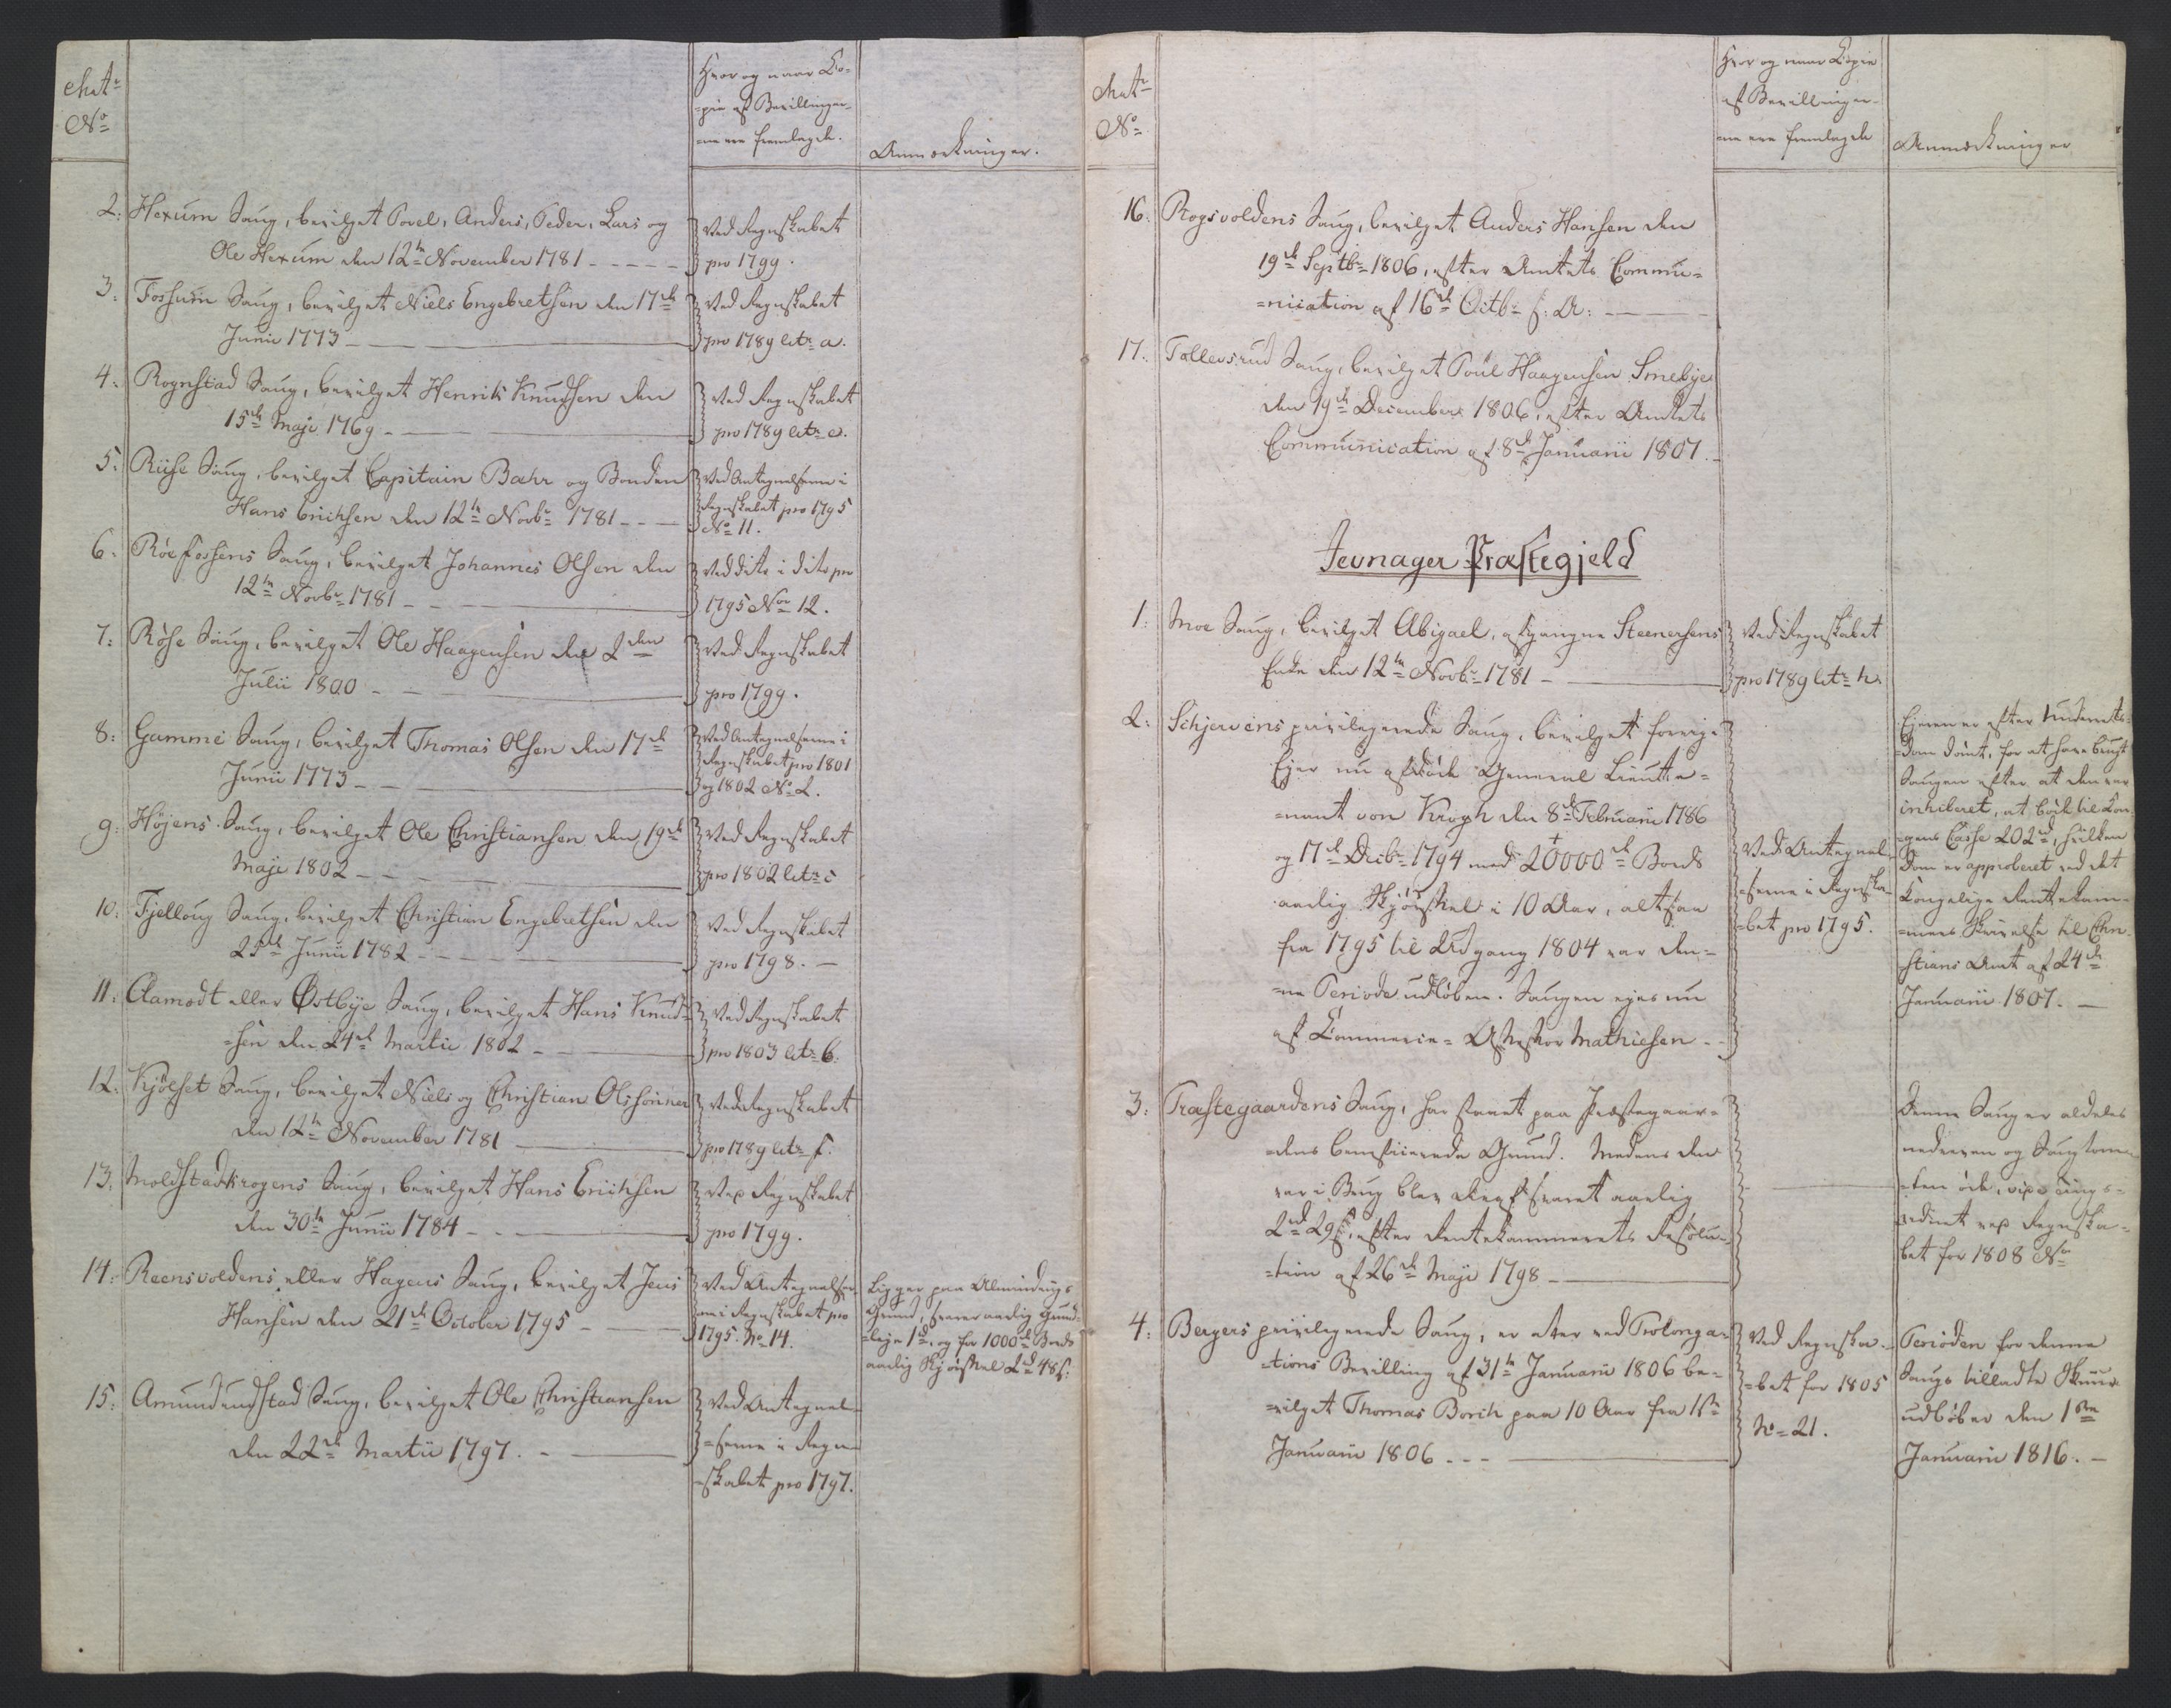 Matr
No
Hvor og naar Co-
=pie af Bevillinger-
=ne ere fremlagde.
Anmærkninger.
2: Hexum Saug, bevilget Povel, Anders, Peder, Lars og
Ole Hexum den 12te November 1781
Ved Regnskabet
pro 1799.
3. Fossum Saug, bevilget Niels Engebrethsen den 17de
Junii 1773
Ved Regnskabet
pro 1789 litr a.
4: Rognstad Saug, bevilget Henrik Knudsen den
15de Maji 1769
Ved Regnskabet
pro 1789 litr e.
5: Riise Saug, bevilget Capitain Bæhr og Bonden
Hans Erichsen den 12te Novbr 1781
Ved Antegnelserne i
Regnskabet pro 1795
No 11.
6: Röefossens Saug, bevilget Johannes Olsen den
12te Novbr 1781
Ved dito i dito pro
1795 No 12.
7: Röse Saug, bevilget Ole Haagensen den 2den
Julii 1800
Ved Regnskabet
pro 1799.
8: Gamme Saug, bevilget Thomas Olsen den 17de
Junii 1773
Ved Antegnelserne i
Regnskabet pro 1801
og 1802 No 2.
9: Höjens Saug, bevilget Ole Christiansen den 19de
Maji 1802
Ved Regnskabet
pro 1802 litr c
10: Fjelloug Saug, bevilget Christian Engebrethsen den
25de Junii 1782
Ved Regnskabet
pro 1798.
11: Aamodt eller Østbÿe Saug, bevilget Hans Knud-
=sen den 24de Martii 1802
Ved Regnskabet
pro 1803 litr b.
12: Kjölset Saug, bevilget Niels og Christian Olssönner
den 12te November 1781
Ved Regnskabet
pro 1789 litr f.
13. Moldstadkrogens Saug, bevilget Hans Erichsen
den 30te Junii 1784
Ved Regnskabet
pro 1799.
14: Reensvoldens eller Hagens Saug, bevilget Jens
Hansen den 21de October 1795
Ved Antegnelser-
ne i Regnskabet pro
1795. No 14.
Ligger paa Almindings
Grund, svarer aarlig Grund-
=leje 1 rd. og for 1000 de Bords
aarlig Skjörsel 2 rd 48 s:
15: Amundrudstad Saug, bevilget Ole Christiansen
den 22de Martii 1797.
Ved Antegnel-
=serne i Regn-
=skabet pro 1797.
Matr
No
Hvor og naar Copie
af Bevillinger-
ne ere fremlagde
Anmærkninger
16: Rogsvoldens Saug, bevilget Anders Hansen den
19de Septbr 1806, efter Amtets Commu-
=nication af 16de Octbr s: A:
17: Tollevsrud Saug, bevilget Poul Haagensen Smebye
den 19de December 1806, efter Amtets
Communication af 8de Januarii 1807.
Jevnager Præstegjeld
1: Moe Saug, bevilget Abigael, afgangne Steenersens
Enke den 12te Novbr 1781
Ved Regnskabet
pro 1789 litr h.
2: Schjervens privilegerede Saug, bevilget forrige
Ejer nu afdöde General Lieute-
=nant von Krogh den 8de Februarii 1786
og 17de Decbr 1794 med 20000 de Bords
aarlig Skjörsel i 10 Aar, altsaa
fra 1795 til Udgang 1804 var den-
=ne Periode udlöben. Saugen ejes nu
af Commerce- Assessor Mathiesen
Ved Antegnel-
=serne i Regnska-
=bet pro 1795.
Ejeren er efter Underrets-
=dom dömt, for at have brugt
Saugen efter at den var
inhiberet, at böde til Kon-
=gens Casse 202 rd, hvilken
Dom er approberet ved det
Kongelige Rentekam-
=mers Skrivelse til Chri-
stians Amt af 24de
Januarii 1807.
3: Præstegaardens Saug, har staaet paa Præstegaar-
=dens beneficerede Grund. Medens den
var i Brug blev deraf svaret aarlig
2 rd 29 s, efter Rentekammerets Resolu-
=tion af 26de Maji 1798
Denne Saug er aldeles
nedreven og Saugtom-
=ten öde, vide Tings-
=vidnet ved Regnska-
bet for 1808 No
4: Bergers privilegerede Saug, er atter ved Prolonga-
=tions Bevilling af 31te Januarii 1806 be-
=vilget Thomas Borch paa 10 Aar fra 1te
Januarii 1806
Ved Regnska-
=bet for 1805
No 21.
Perioden for denne
Saugs tilladte Skuur
udlöber den 1ste
Januarii 1816.